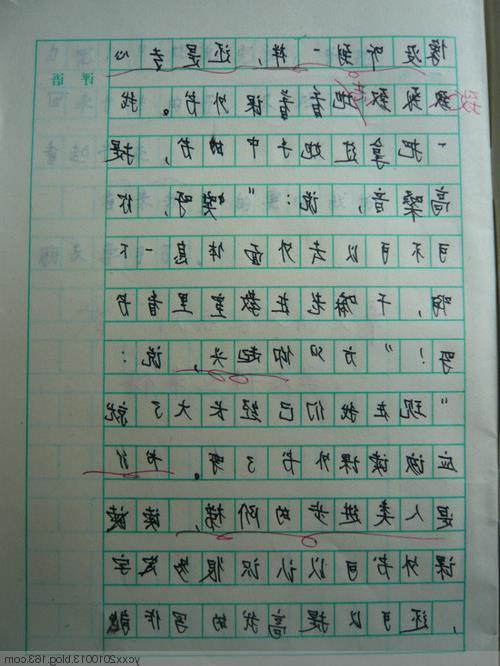 评语
像没听到一样，还是专心
致致地看着课外书。我
一把拿过她手中的书，提
高嗓音，说：“哎呀，你
可不可以去外面休息一下
呀，干嘛老在教室里看书
呀！”方又抬起头，说：
“现在我们已经长大了就
应该读课外书了呀。书
是人类进步的阶梯，读读
课外书可以认识很多字
，还可以提高我的写作能
ycxx20100013.blog.163.com